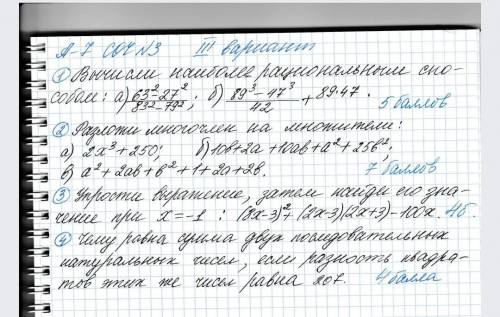 А-7 СОЧ №3 III вариант
① Вычисли наиболее рациональным спо-
собом: а) 63²-27²/83²-79²; б) 89³-47³/42 + 89·47. 5 баллов
② Разложи многочлен на множители:
а) 2x³+250; б) 10b+2a+10ab+a²+25b²;
в) a²+2ab+b²+1+2a+2b. 7 баллов
③ Упрости выражение, затем найди его зна-
чение при x=-1: (8x-3)²+(2x-3)(2x+3)-100x. 4б.
④ Чему равна сумма двух последовательных
натуральных чисел, если разность квадра-
тов этих же чисел равна 207. 4 балла